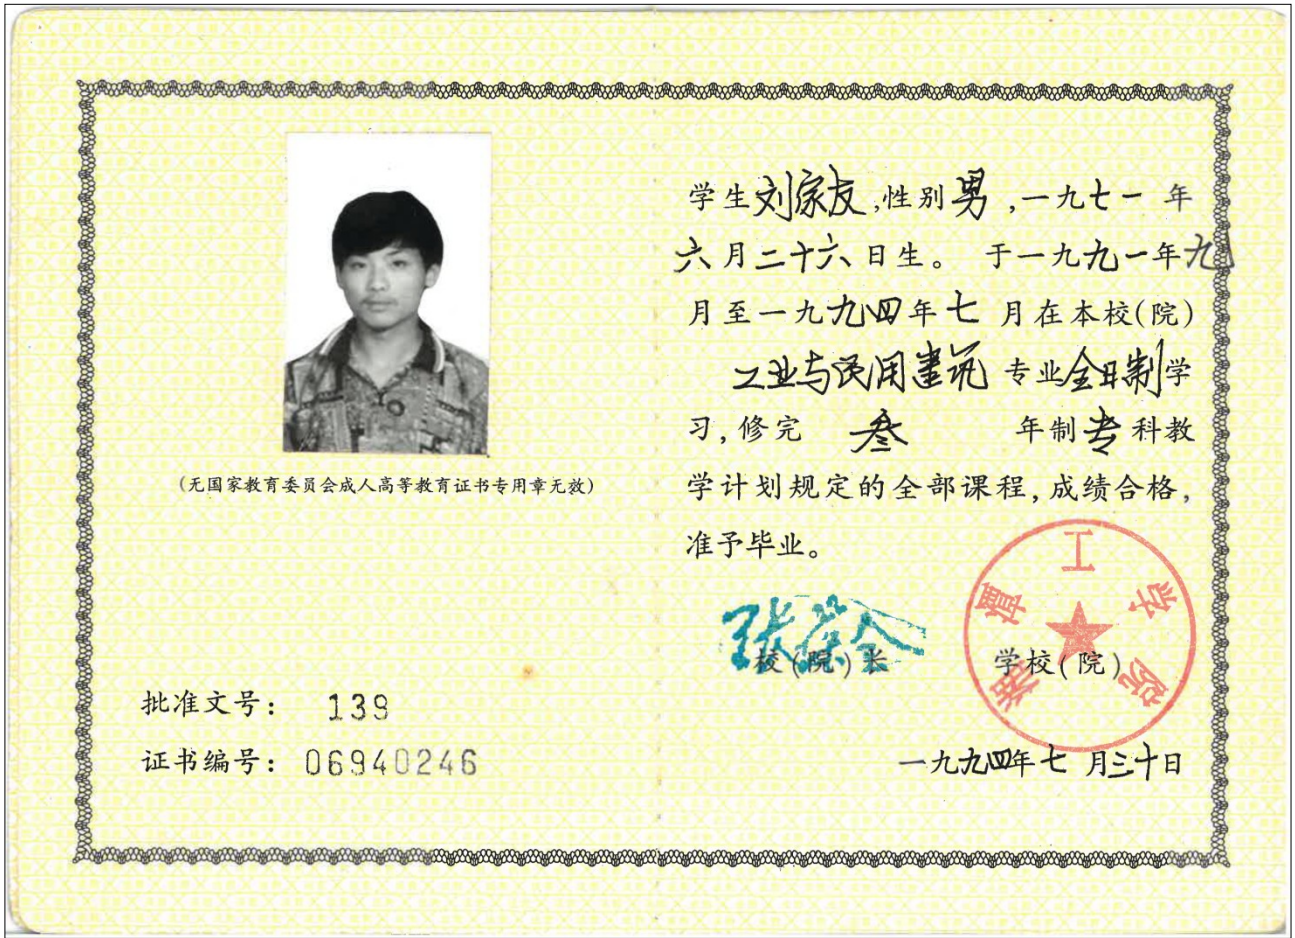 (无国家教育委员会成人高等教育证书专用章无效)
批准文号： 139
证书编号： 06940246
学生刘家友,性别男,一九七一 年
六月二十六日生。 于一九九一年九
月至一九九四年七 月在本校(院)
工业与民用建筑 专业全日制学
习,修完 叁 年制专科教
学计划规定的全部课程,成绩合格,
准予毕业。
张荣全
校(院)长 学校(院)
湘潭工学院
一九九四年七 月三十日